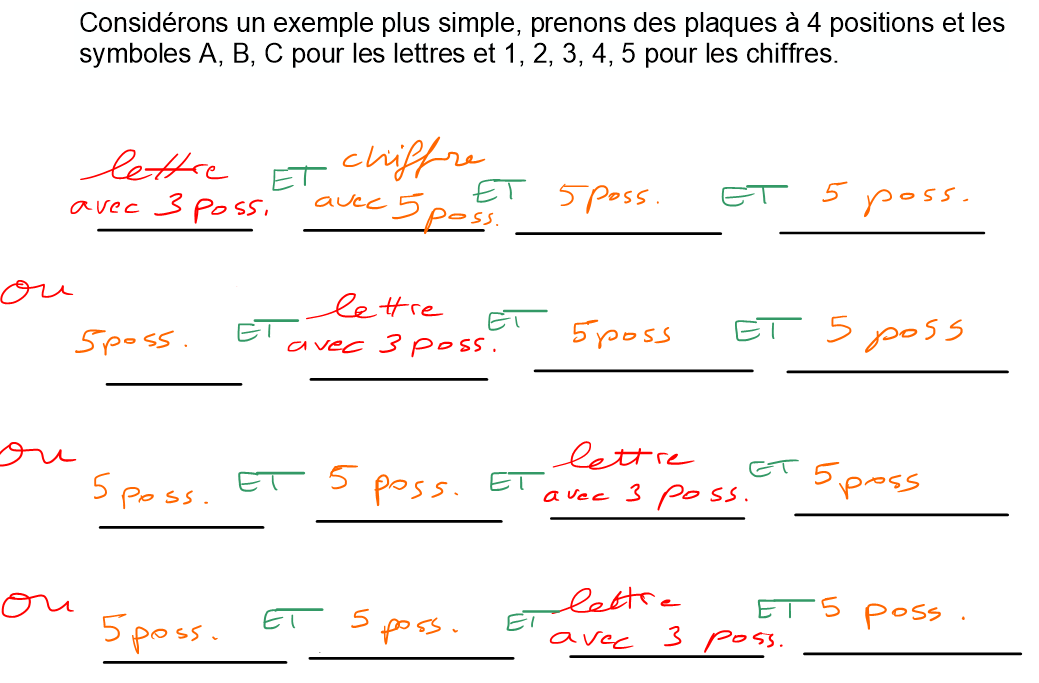 Considérons un exemple plus simple, prenons des plaques à 4 positions et les
symboles A, B, C pour les lettres et 1, 2, 3, 4, 5 pour les chiffres.
lettre ET chiffre
avec 3 poss. avec 5 poss. ET 5 poss. ET 5 poss.
ou
lettre
5 poss. ET avec 3 poss. ET 5 poss ET 5 poss
ou
lettre
5 poss. ET 5 poss. ET avec 3 poss. ET 5 poss
ou
lettre
5 poss. ET 5 poss. ET avec 3 poss. ET 5 poss.